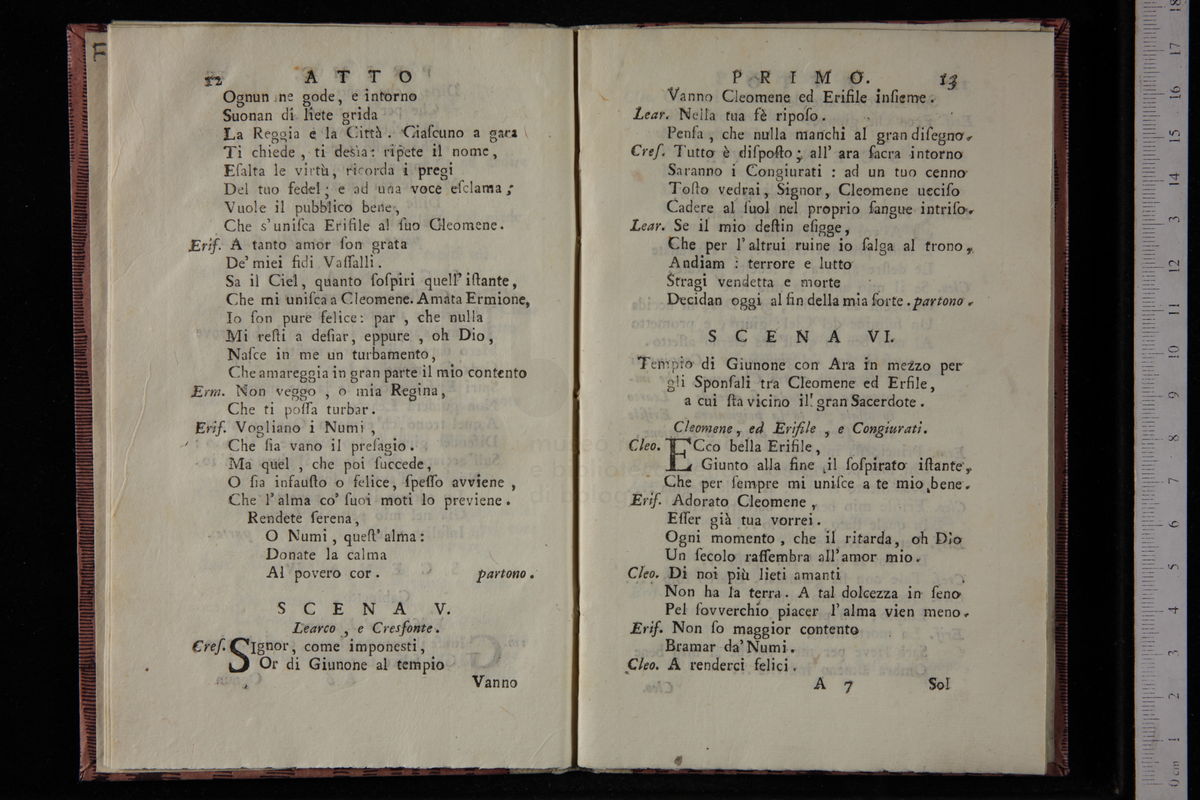 12 ATTO
Ognun ne gode, e intorno
Suonan di liete grida
La Reggia e la Città. Ciaſcuno a gara
Ti chiede, ti desìa: ripete il nome,
Eſalta le virtù, ricorda i pregi
Del tuo fedel; e ad una voce eſclama;
Vuole il pubblico bene,
Che s'uniſca Erifile al ſuo Cleomene.
Erif. A tanto amor ſon grata
De' miei fidi Vaſſalli.
Sa il Ciel, quanto ſoſpiri quell' iſtante,
Che mi uniſca a Cleomene. Amata Ermione,
Io ſon pure felice: par, che nulla
Mi reſti a deſiar, eppure, oh Dio,
Naſce in me un turbamento,
Che amareggia in gran parte il mio contento
Erm. Non veggo, o mia Regina,
Che ti poſſa turbar.
Erif. Vogliano i Numi,
Che ſia vano il preſagio.
Ma quel, che poi ſuccede,
O ſia infauſto o felice, ſpeſſo avviene,
Che l'alma co' ſuoi moti lo previene.
Rendete ſerena,
O Numi, queſt' alma:
Donate la calma
Al povero cor. partono.
SCENA V.
Learco, e Cresfonte.
Creſ. SIgnor, come imponesti,
Or di Giunone al tempio
Vanno
PRIMO. 13
Vanno Cleomene ed Erifile inſieme.
Lear. Nella tua fè ripoſo.
Penſa, che nulla manchi al gran diſegno.
Creſ. Tutto è diſpoſto; all' ara ſacra intorno
Saranno i Congiurati: ad un tuo cenno
Toſto vedrai, Signor, Cleomene ucciſo
Cadere al ſuol nel proprio ſangue intriſo.
Lear. Se il mio deſtin eſigge,
Che per l'altrui ruine io ſalga al trono,
Andiam: terrore e lutto
Stragi vendetta e morte
Decidan oggi al fin della mia ſorte. partono.
SCENA VI.
Tempio di Giunone con Ara in mezzo per
gli Sponſali tra Cleomene ed Erfile,
a cui ſta vicino il gran Sacerdote.
Cleomene, ed Erifile, e Congiurati.
Cleo. ECco bella Erifile,
Giunto alla fine il ſoſpirato iſtante,
Che per ſempre mi uniſce a te mio bene.
Erif. Adorato Cleomene,
Eſſer già tua vorrei.
Ogni momento, che il ritarda, oh Dio
Un ſecolo raſſembra all'amor mio.
Cleo. Di noi più lieti amanti
Non ha la terra. A tal dolcezza in ſeno
Pel ſovverchio piacer l'alma vien meno.
Erif. Non ſo maggior contento
Bramar da' Numi.
Cleo. A renderci felici.
A 7 Sol